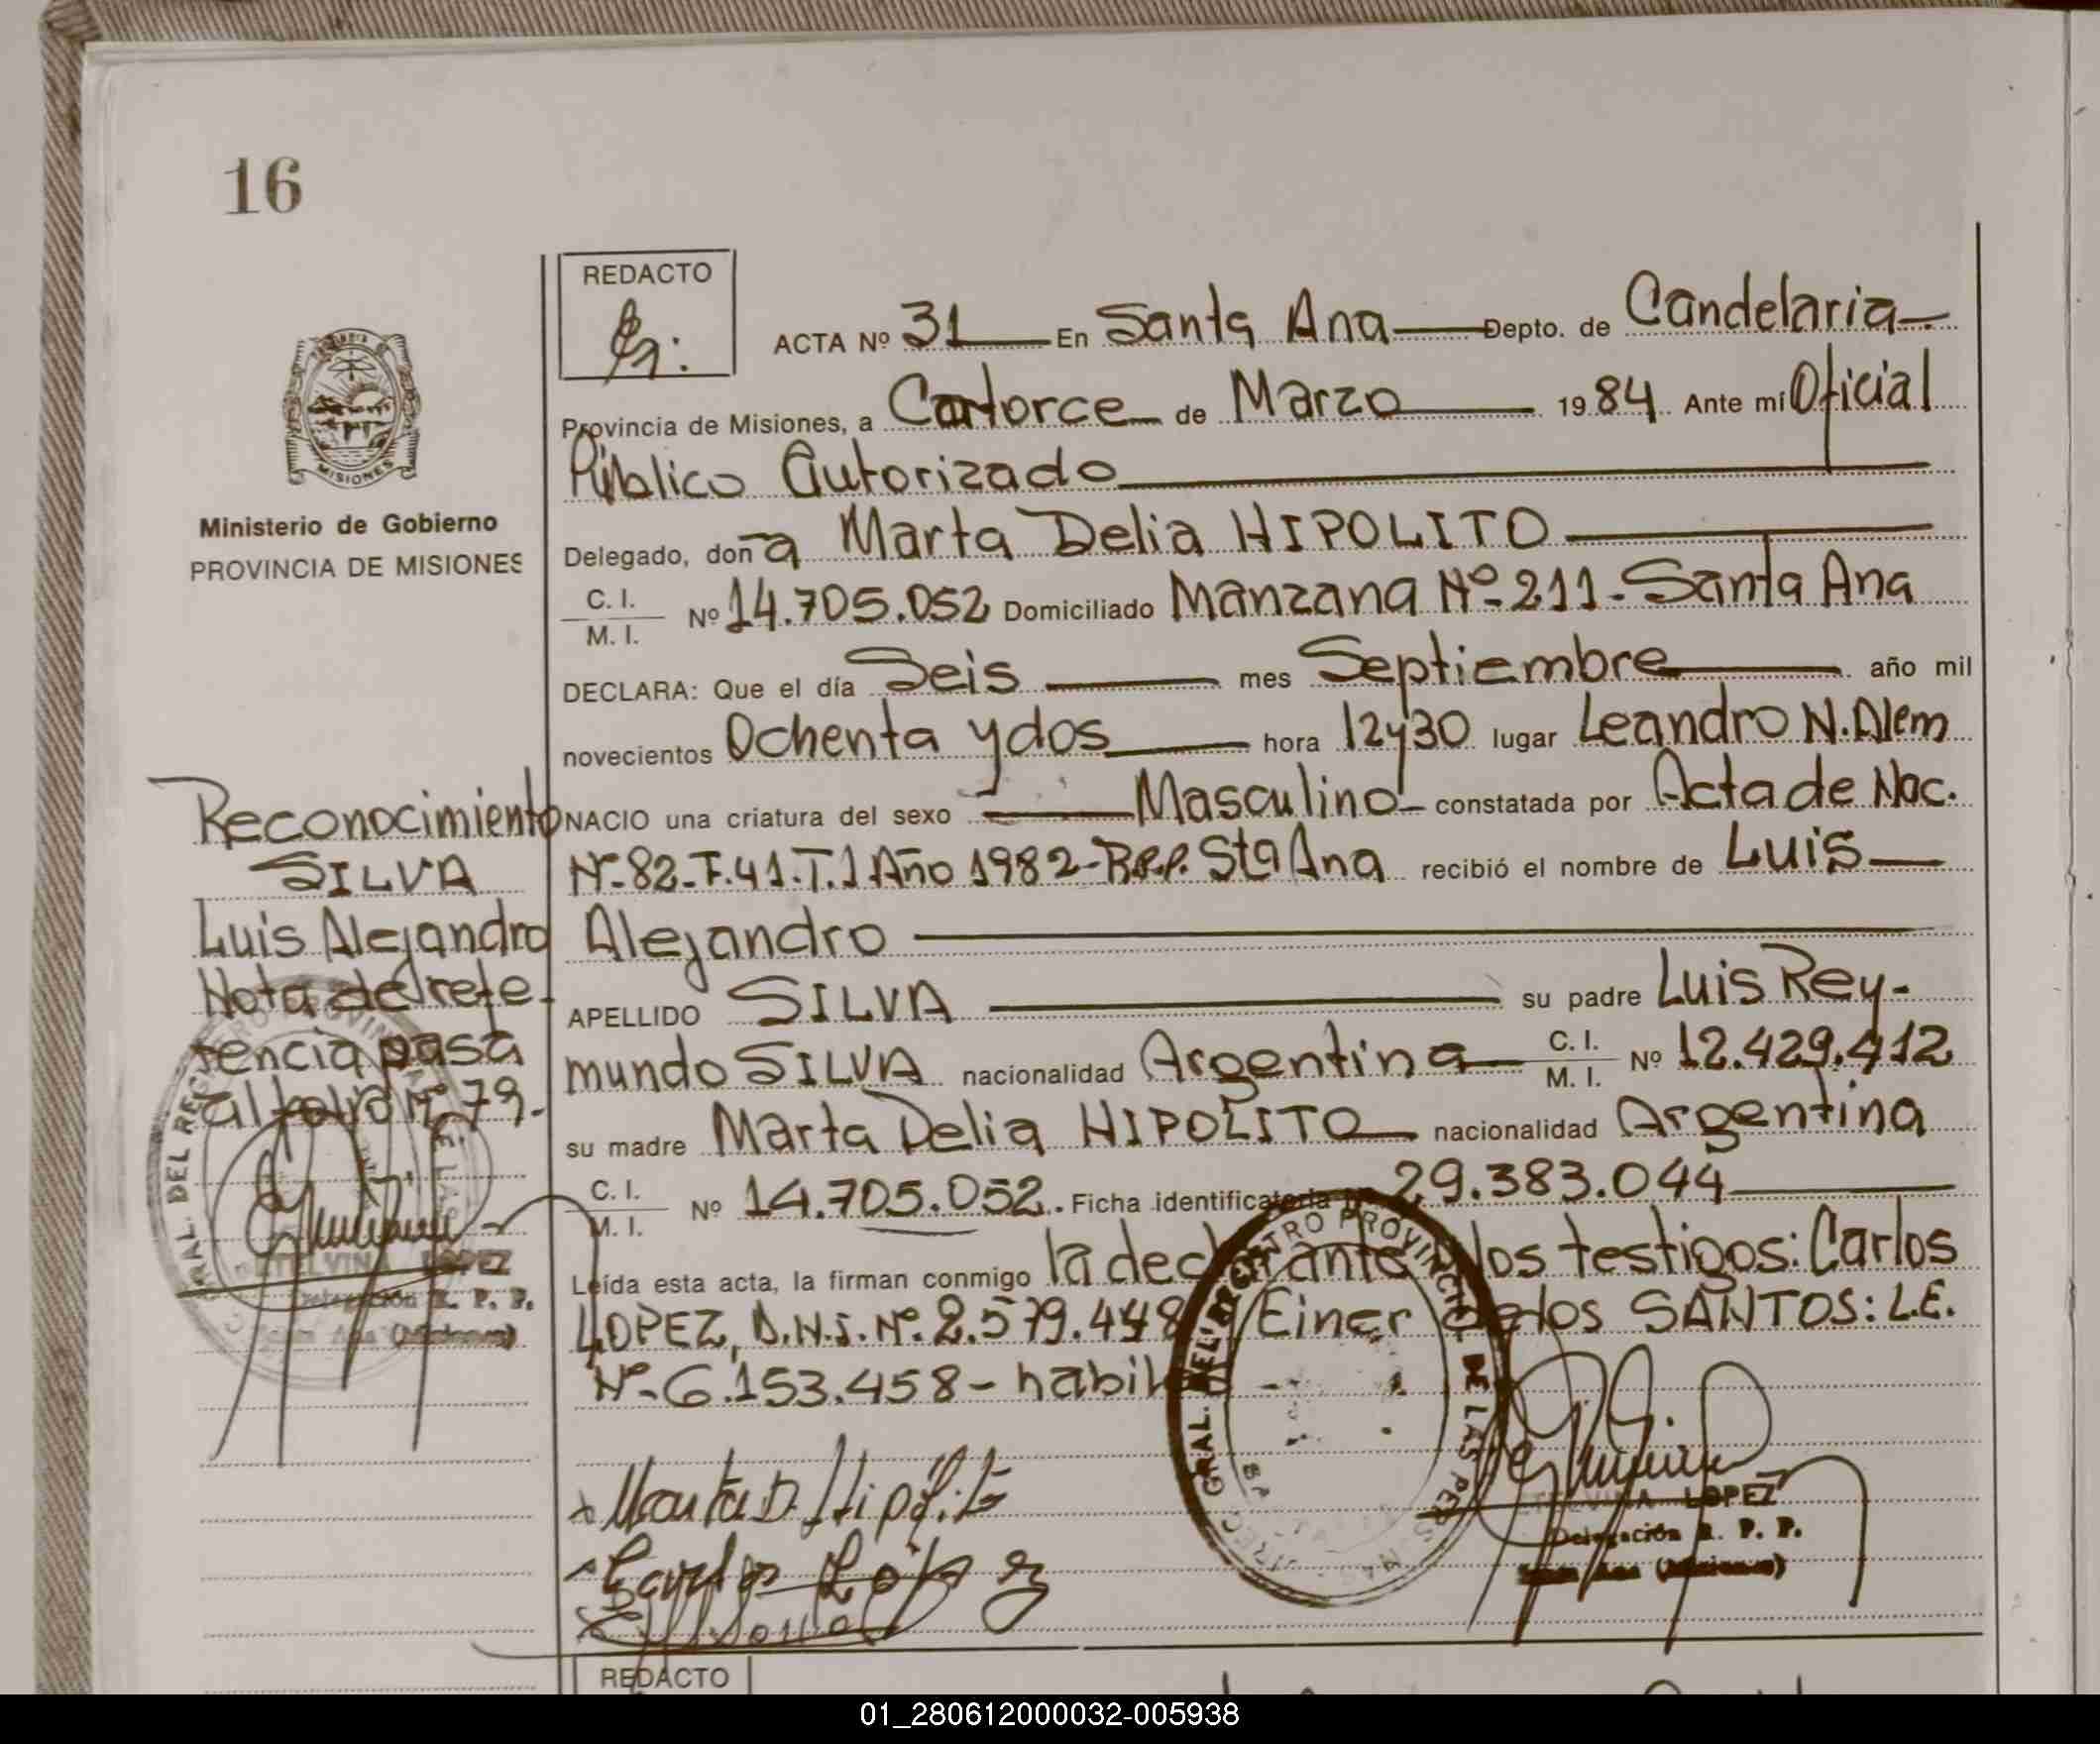 16
REDACTO
ACTA Nº 31 En Santa Ana Depto. de Candelaria
Provincia de Misiones, a Catorce de Marzo 1984 Ante mí Oficial
Público Autorizado
Ministerio de Gobierno
PROVINCIA DE MISIONES
MISIONES
Delegado, doña Marta Delia HIPOLITO
C. I.
M. I. Nº 14.705.052 Domiciliado Manzana Nº 211 - Santa Ana
DECLARA: Que el día Seis mes Septiembre año mil
novecientos Ochenta y dos hora 12 y 30 lugar Leandro N. Alem
NACIO una criatura del sexo Masculino constatada por Acta de Nac.
Nº 82 - F. 41 - T. 1 Año 1982 - Sta Ana recibió el nombre de Luis
Alejandro
APELLIDO SILVA su padre Luis Rey-
mundo SILVA nacionalidad Argentina C. I.
M. I. Nº 12.429.412
su madre Marta Delia HIPOLITO nacionalidad Argentina
C. I.
M. I. Nº 14.705.052. Ficha identificatoria 29.383.044
Leída esta acta, la firman conmigo la declarante los testigos: Carlos
LOPEZ, D.N.I. Nº 2.579.448 Einer de los SANTOS: L.E.
Nº 6.153.458 -
Reconocimiento
SILVA
Luis Alejandro
Nota de refe-
rencia pasa
al folio Nº 79.
LOPEZ
Delegación R. P. P.
Santa Ana (Misiones)
Marta D. Hipólito
Carlos López
GRAL. DEL REGISTRO PROVINCIAL DE LAS PER
LOPEZ
Delegación R. P. P.
Santa Ana (Misiones)
REDACTO
01_280612000032-005938